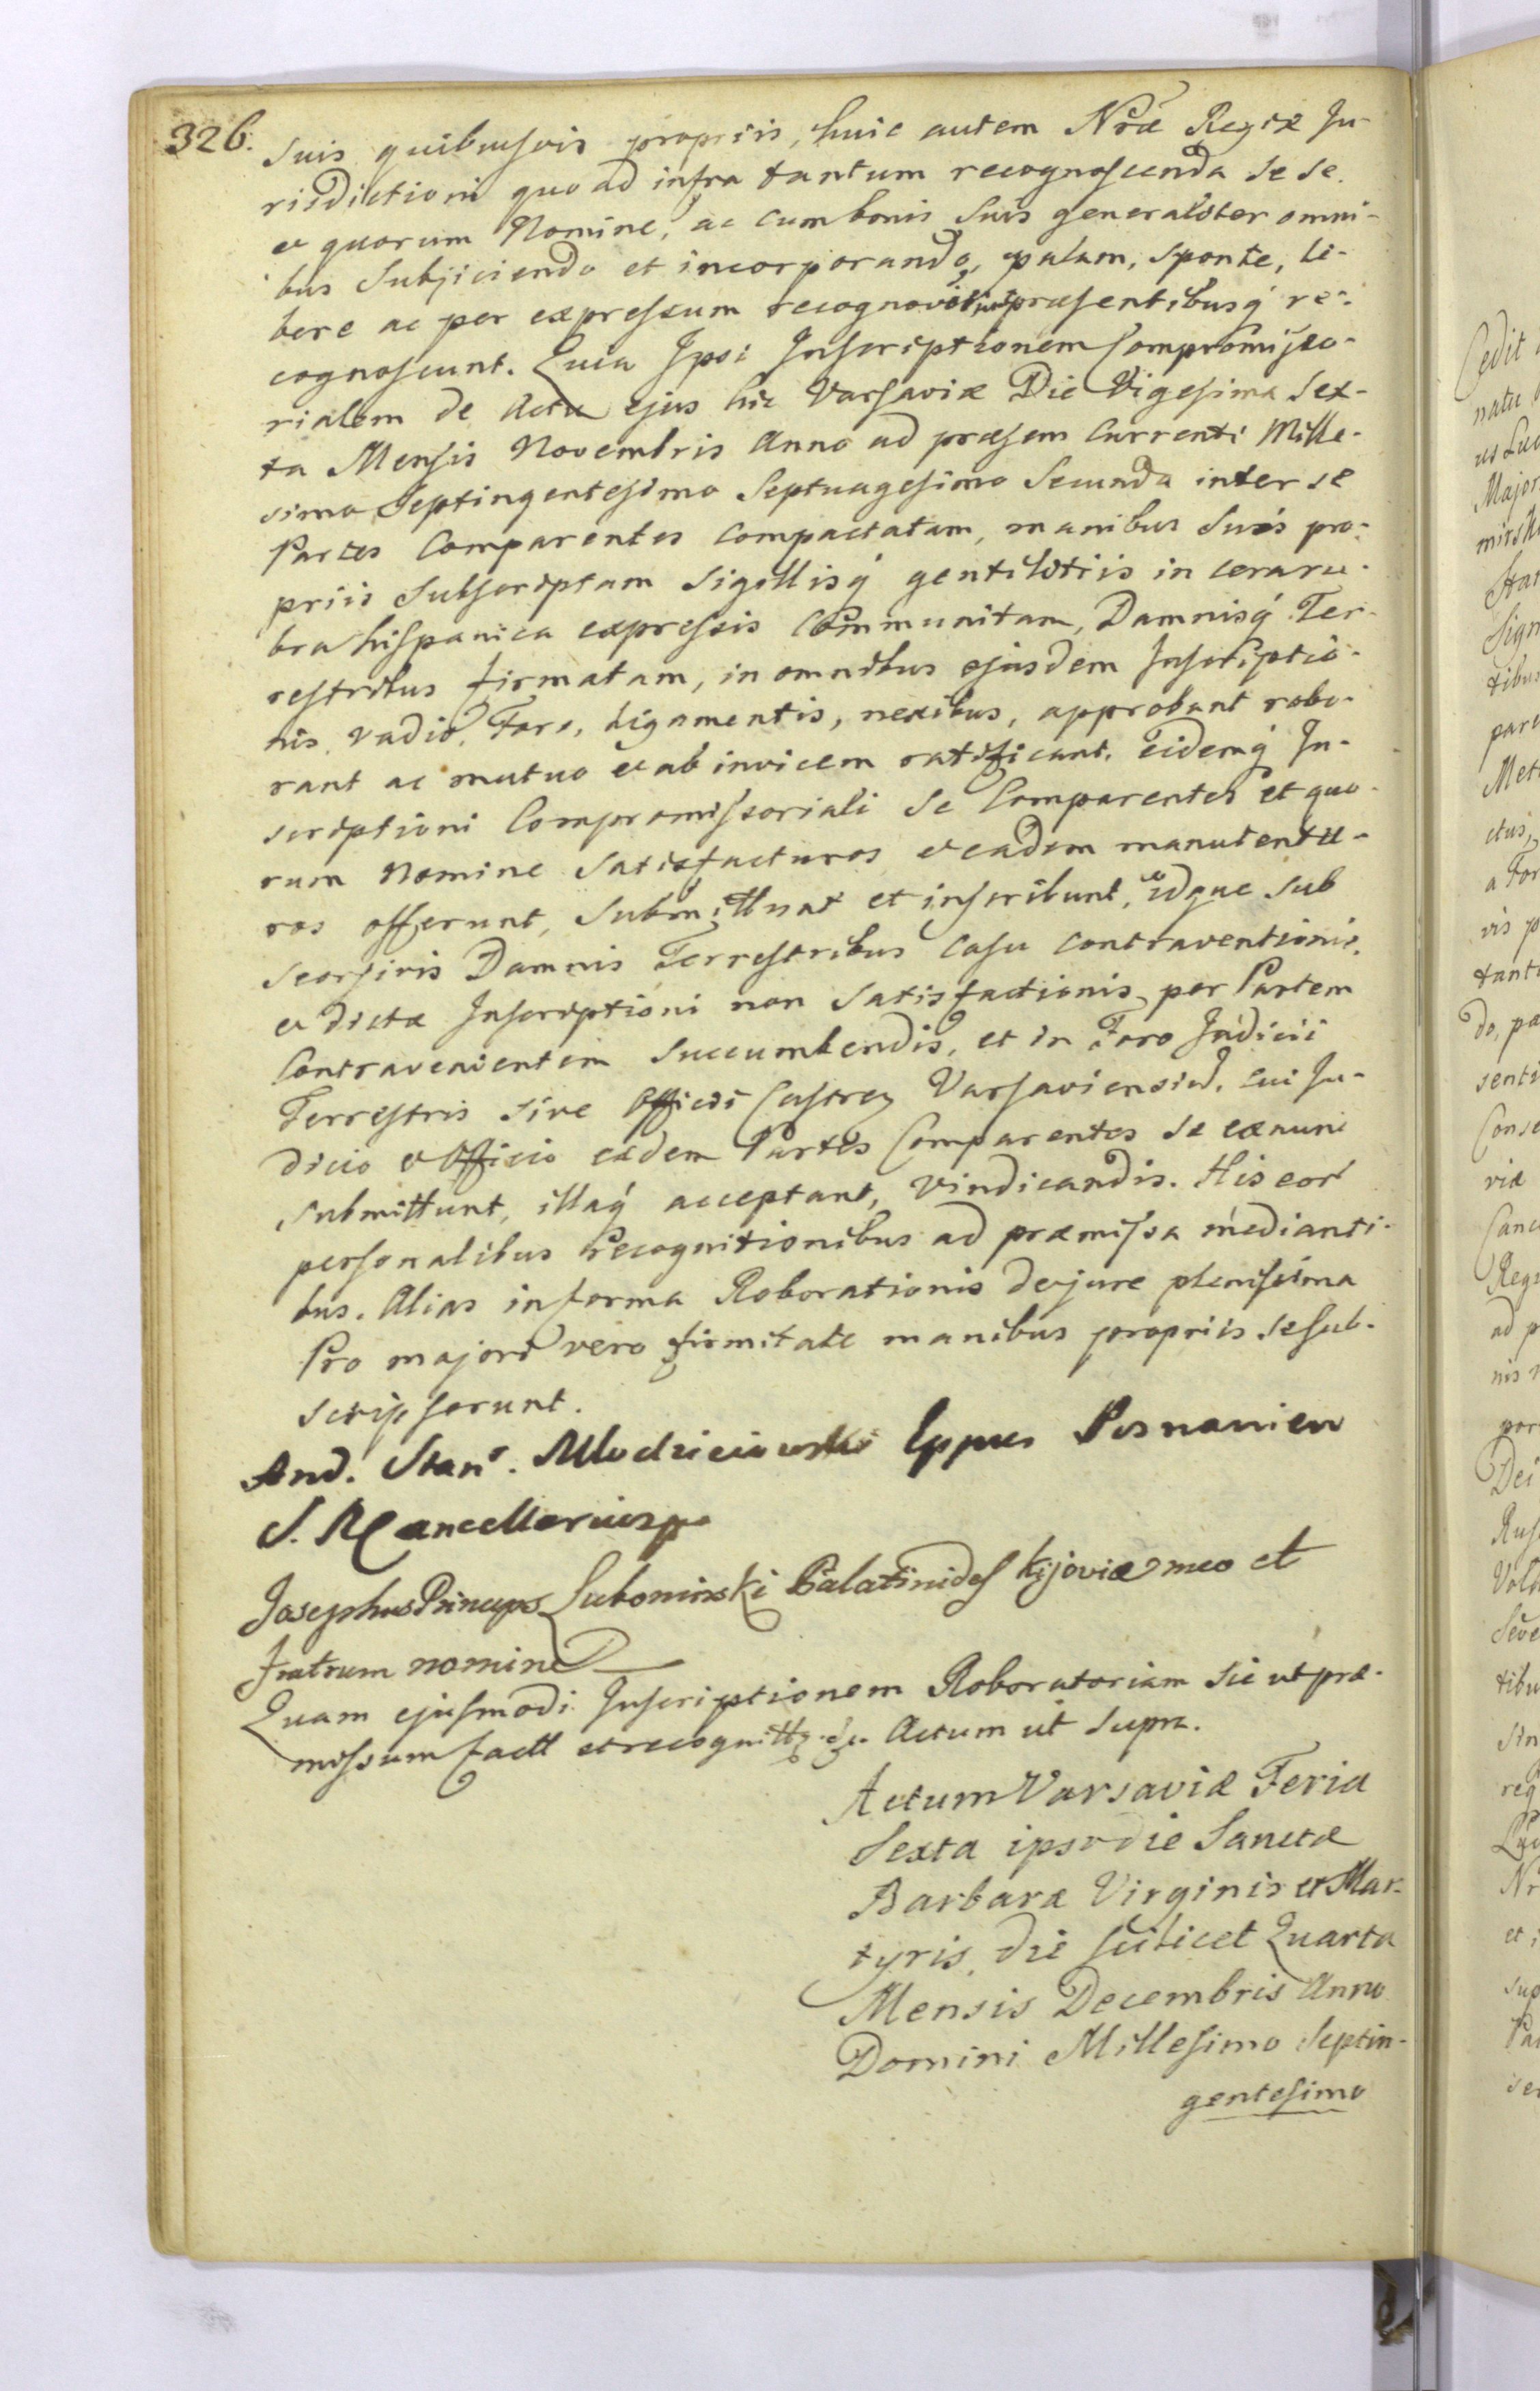 326.
suis quibusvis propriis, huic autem Nrae Regiae Ju-
risdictioni quo ad infra tantum recognoscenda se se
et quorum Nomine, ac cum bonis suis generaliter omni-
bus Subjiciendo et incorporando, palam, sponte, li-
bere ac per expressum recognoverunt praesentibusq́ re-
cognoscunt. Quia Ipsi Inscriptionem Compromisso-
rialem de Actu ejus hic Varsaviae Die Vigesima Sex-
ta Mensis Novembris Anno ad praesem Currenti Mille-
simo Septingentesimo Septuagesimo Secundo inter se
Partes Comparentes Compactatam, manibus Suis pro-
priis Subscriptam Sigillisq́ gentilitiis in cera ru-
bra hispanica expressis Communitam, Damnisq́ Ter-
restribus firmatam, in omnibus ejusdem Inscriptio-
nis, Vadio, Foro, ligamentis, nexibus, approbant robo-
rant ac mutuo et ab invicem ratificant. Eidemq́ In-
scriptioni Compromissoriali Se Comparentes et quo-
rum Nomine Satisfacturos et eadem manutentu-
ros offerunt, Submittunt et inscribunt, idque sub
seorsivis Damnis Terrestribus Casu Contraventionis,
et dictae Inscriptioni non Satisfactionis per Partem
Contravenientem Succumbendis, et in Foro Judicii
Terrestris sive Officii Castren Varsaviensis, cui Ju-
dicio et Officio eaedem Partes Comparentes se ex nunc
Submittunt, illaq́ acceptant, Vindicandis. His eor
personalibus Recognitionibus ad praemissa medianti-
bus. Alias in forma Roborationis de jure plenissima
Pro majori vero firmitate manibus propriis se sub-
scripserunt.
And. Stans. Mlodzieiowski Eppus Posnanien
S. R Cancellarius
Josephus Princeps Lubomirski Palatinides Kijoviae meo et
Fratrum nomine
Quam ejusmodi Inscriptionem Roboratoriam sic ut prae-
missum fact et recognitt Actum ut supra.
Actum Varsaviae Feria
Sexta ipso die Sanctae
Barbarae Virginis et Mar-
tyris, die Scilicet Quarta
Mensis Decembris Anno
Domini Millesimo Septin-
gentesimo